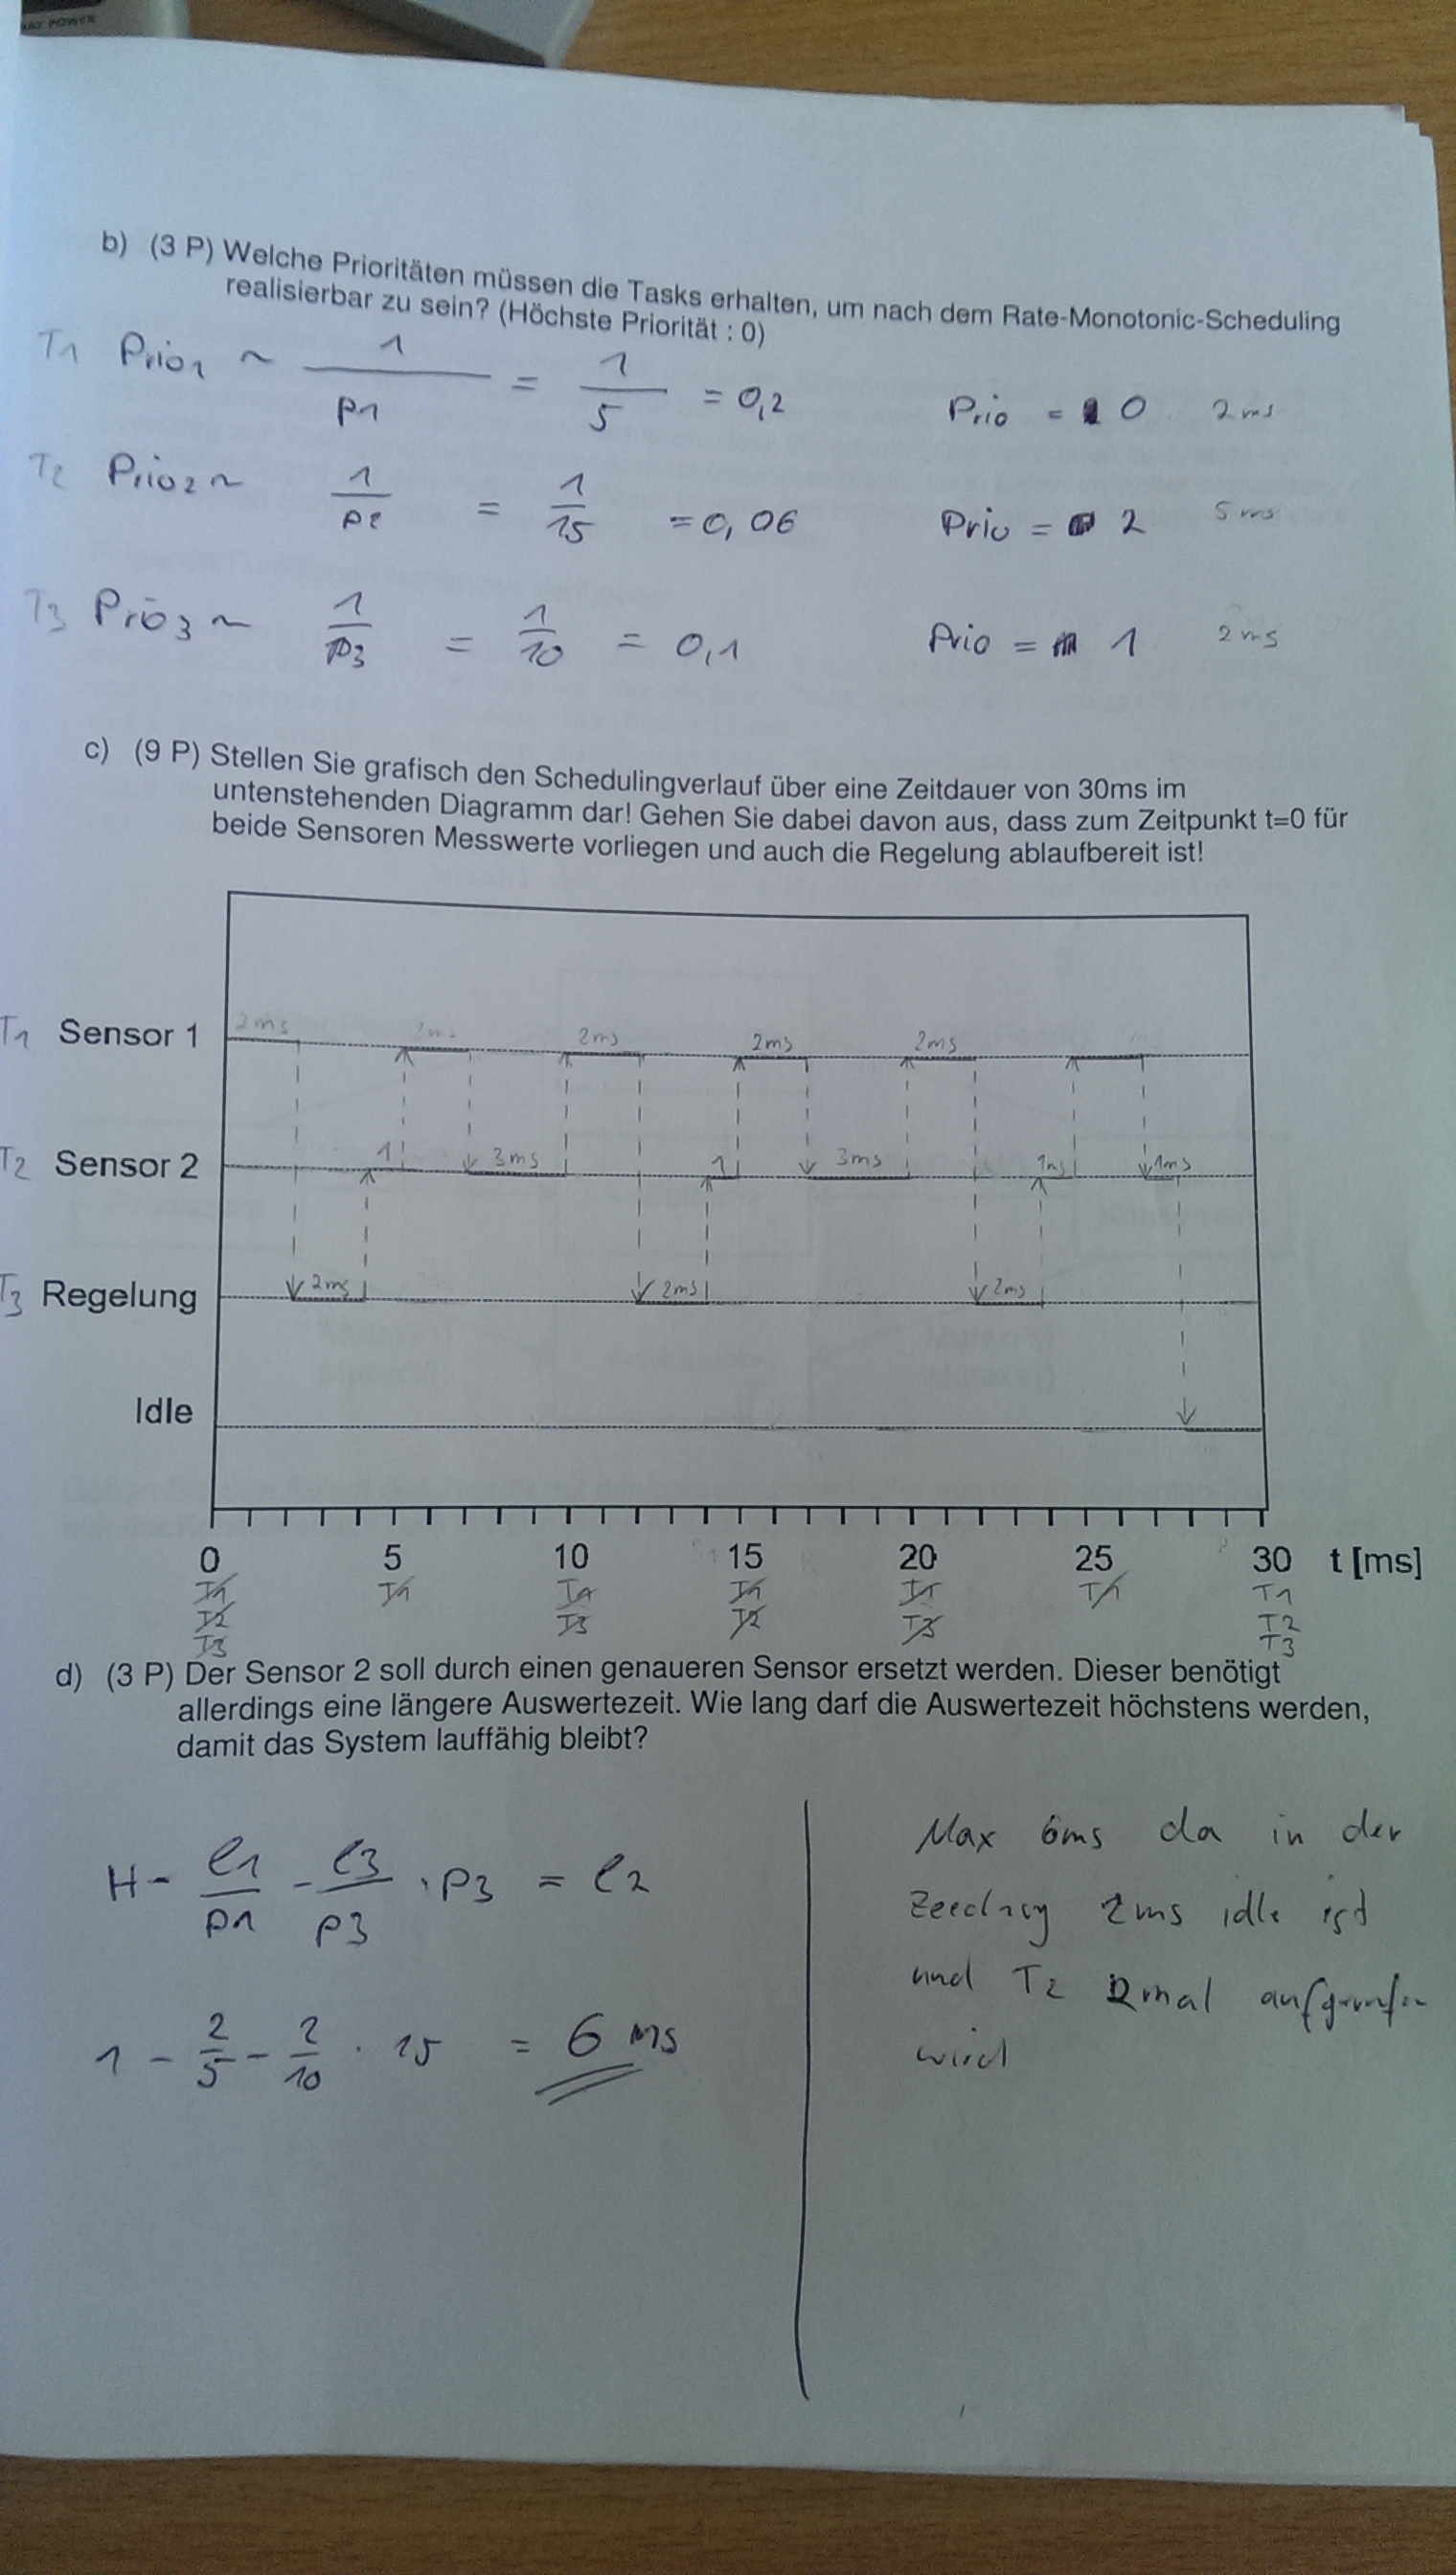 b) (3 P) Welche Prioritäten müssen die Tasks erhalten, um nach dem Rate-Monotonic-Scheduling
realisierbar zu sein? (Höchste Priorität : 0)
T1 Prio1 ~ 1/p1 = 1/5 = 0,2 Prio = 0 2ms
T2 Prio2 ~ 1/p2 = 1/15 = 0,06 Prio = 2 5ms
T3 Prio3 ~ 1/p3 = 1/10 = 0,1 Prio = 1 2ms
c) (9 P) Stellen Sie grafisch den Schedulingverlauf über eine Zeitdauer von 30ms im
untenstehenden Diagramm dar! Gehen Sie dabei davon aus, dass zum Zeitpunkt t=0 für
beide Sensoren Messwerte vorliegen und auch die Regelung ablaufbereit ist!
T1 Sensor 1 2ms 2ms 2ms 2ms 2ms
T2 Sensor 2 1 3ms 1 3ms 1ms 1ms
T3 Regelung 2ms 2ms 2ms
Idle
0 5 10 15 20 25 30 t [ms]
T1 T1 T1 T1 T1 T1 T1
T2 T3 T2 T3 T2
T3 T3
d) (3 P) Der Sensor 2 soll durch einen genaueren Sensor ersetzt werden. Dieser benötigt
allerdings eine längere Auswertezeit. Wie lang darf die Auswertezeit höchstens werden,
damit das System lauffähig bleibt?
H - e1/p1 - e3/p3 · p3 = e2
1 - 2/5 - 2/10 · 15 = 6 ms
Max 6ms da in der
2ms idle ist
und T2 2mal
wird